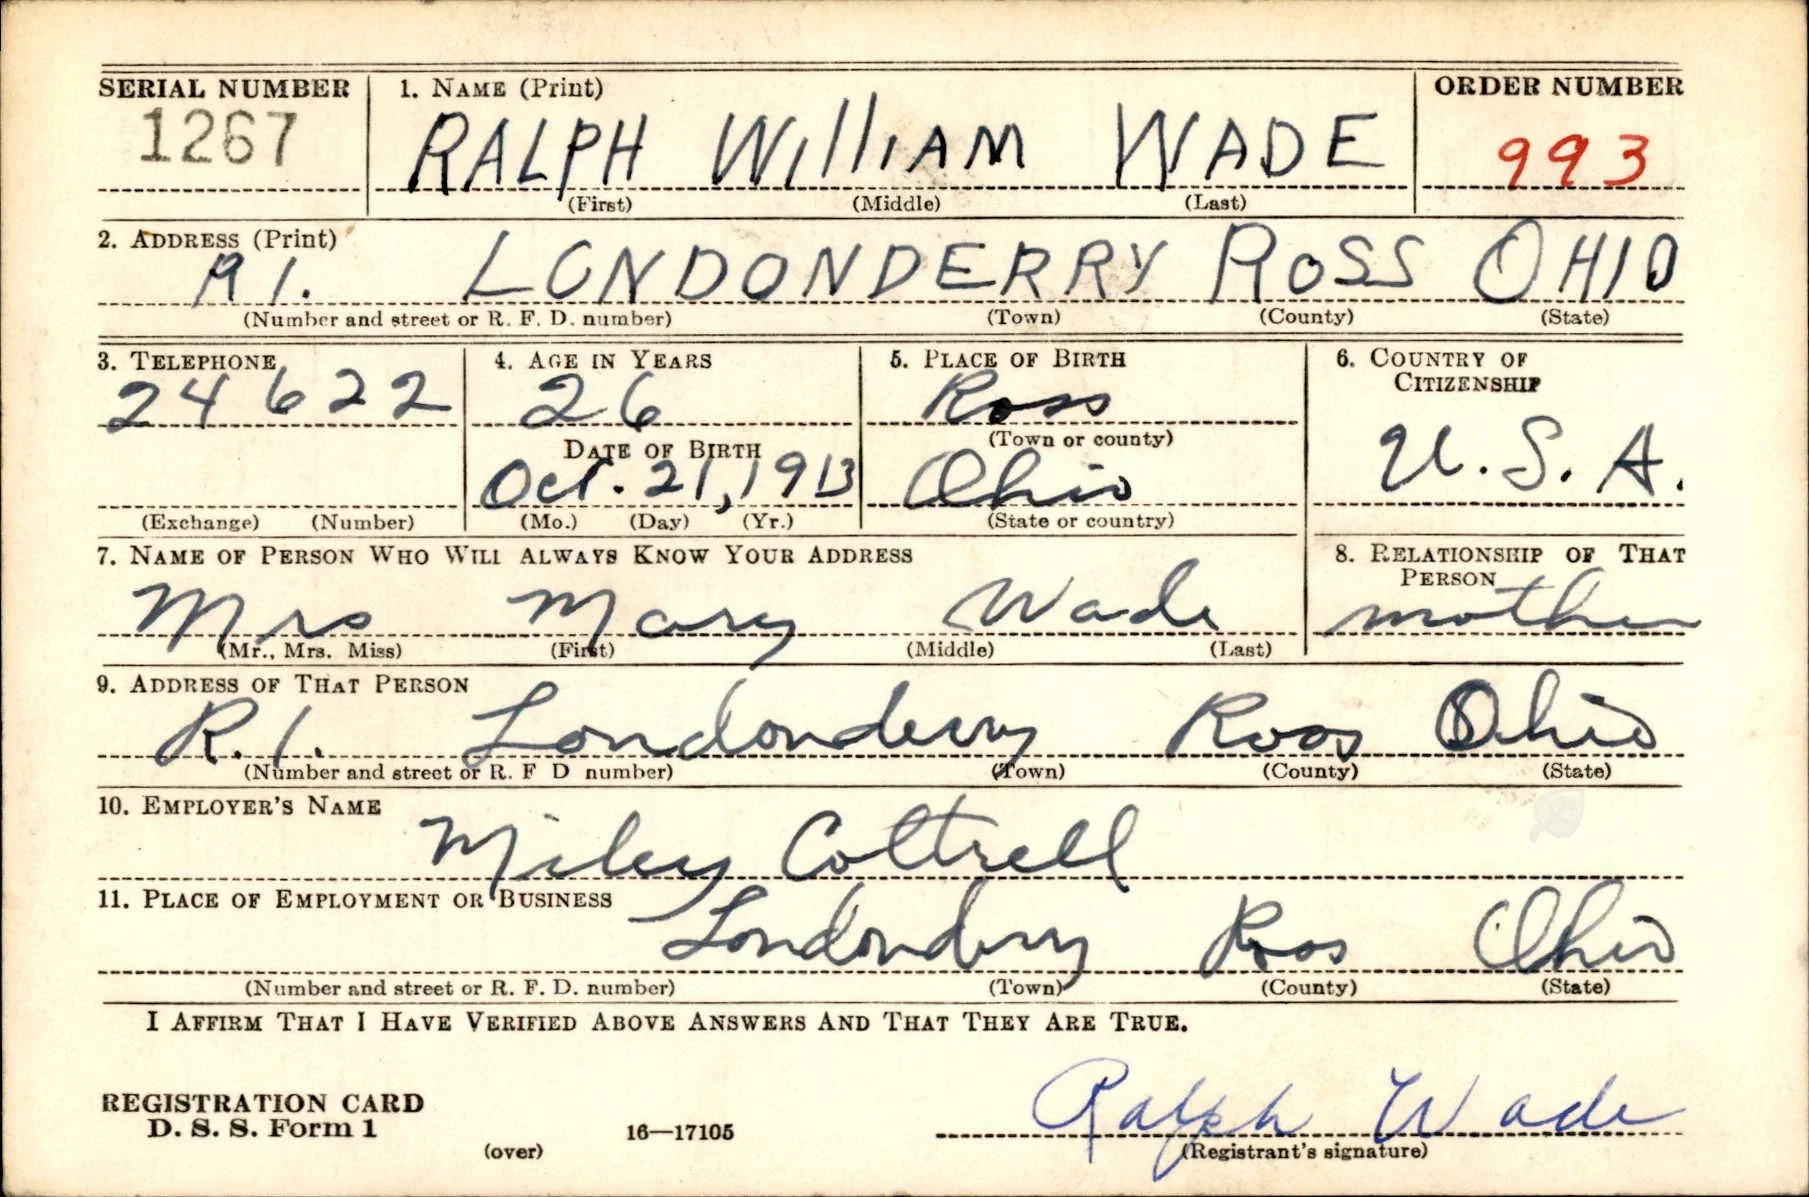 SERIAL NUMBER 1. NAME (Print) ORDER NUMBER
1267 RALPH William WADE 993
(First) (Middle) (Last)
2. ADDRESS (Print)
R1. LONDONDERRY ROSS OHIO
(Number and street or R. F. D. number) (Town) (County) (State)
3. TELEPHONE 4. AGE IN YEARS 5. PLACE OF BIRTH 6. COUNTRY OF
CITIZENSHIP
24622 26 Ross
DATE OF BIRTH (Town or county)
Oct. 21, 1913 Ohio U.S.A.
(Exchange) (Number) (Mo.) (Day) (Yr.) (State or country)
7. NAME OF PERSON WHO WILL ALWAYS KNOW YOUR ADDRESS 8. RELATIONSHIP OF THAT
PERSON
Mrs Mary Wade mother
(Mr., Mrs. Miss) (First) (Middle) (Last)
9. ADDRESS OF THAT PERSON
R.1. Londonderry Ross Ohio
(Number and street or R. F D number) (Town) (County) (State)
10. EMPLOYER'S NAME
Miley Cottrell
11. PLACE OF EMPLOYMENT OR BUSINESS
Londonderry Ross Ohio
(Number and street or R. F. D. number) (Town) (County) (State)
I AFFIRM THAT I HAVE VERIFIED ABOVE ANSWERS AND THAT THEY ARE TRUE.
REGISTRATION CARD
D. S. S. Form 1 Ralph Wade
(over) 16—17105 (Registrant's signature)